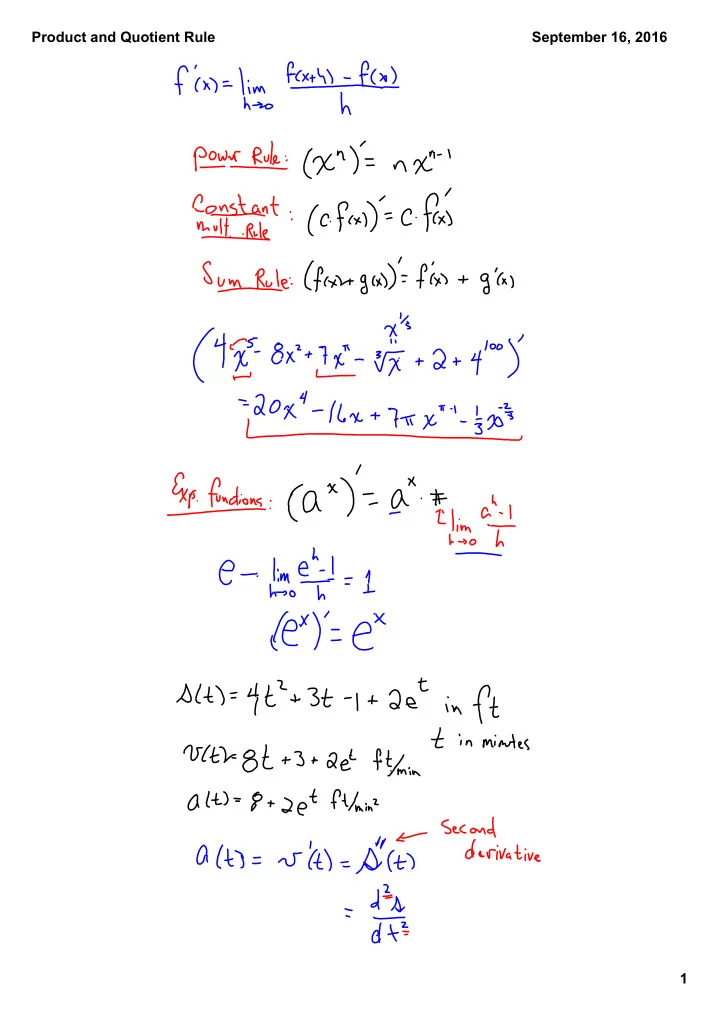 Product and Quotient Rule September 16, 2016
f'(x) = lim h→0 f(x+h) - f(x) / h
power Rule: (xⁿ)' = n xⁿ⁻¹
Constant mult. Rule : (c·f(x))' = c·f'(x)
Sum Rule: (f(x)+g(x))' = f'(x) + g'(x)
x^(1/3)
"
(4x⁵ - 8x² + 7x^π - ³√x + 2 + 4¹⁰⁰)'
= 20x⁴ - 16x + 7π x^(π-1) - 1/3 x^(-2/3)
Exp. functions: (aˣ)' = aˣ · #
↑ lim h→0 aʰ-1 / h
e — lim h→0 eʰ-1 / h = 1
(eˣ)' = eˣ
s(t) = 4t² + 3t - 1 + 2eᵗ in ft
t in minutes
v(t) = 8t + 3 + 2eᵗ ft/min
a(t) = 8 + 2eᵗ ft/min²
Second
a(t) = v'(t) = s''(t) ← derivative
= d²s / dt²
1